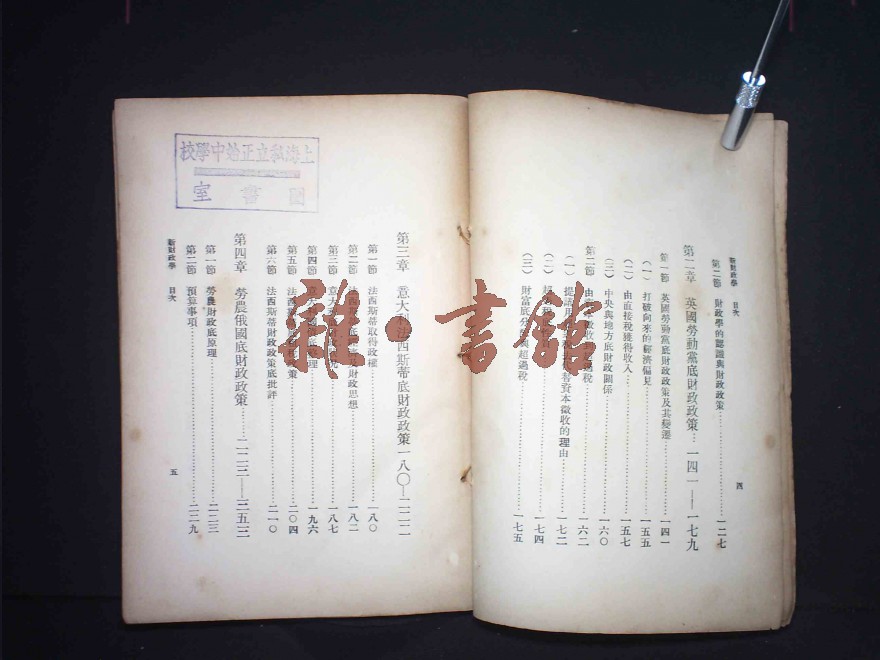 新財政學 目次
四
第二節 財政學的認識與財政政策 一二七
第二章 英國勞動黨底財政政策 一四一——一七九
第一節 英國勞動黨底財政政策及其變遷 一四一
(一) 打破向來的經濟偏見 一五五
(二) 由直接稅獲得收入 一五七
(三) 中央與地方底財政關係 一六〇
第二節 由 稅 一六二
(一) 提議用 資本徵收的理由 一七二
(二) 超 一七四
(三) 財富底分 與超過稅 一七五
上海私立正始中學校
圖書室
第三章 意大利法西斯蒂底財政政策 一八〇—二二二
第一節 法西斯蒂取得政權 一八〇
第二節 法西斯 財政思想 一八二
第三節 意大 一八七
第四節 意大利 理 一九六
第五節 法西 政策 二〇四
第六節 法西斯蒂財政政策底批評 二一〇
第四章 勞農俄國底財政政策 二二三——三五三
第一節 勞農財政底原理 二二三
第二節 預算事項 二二九
新財政學 目次
五
雜·書館